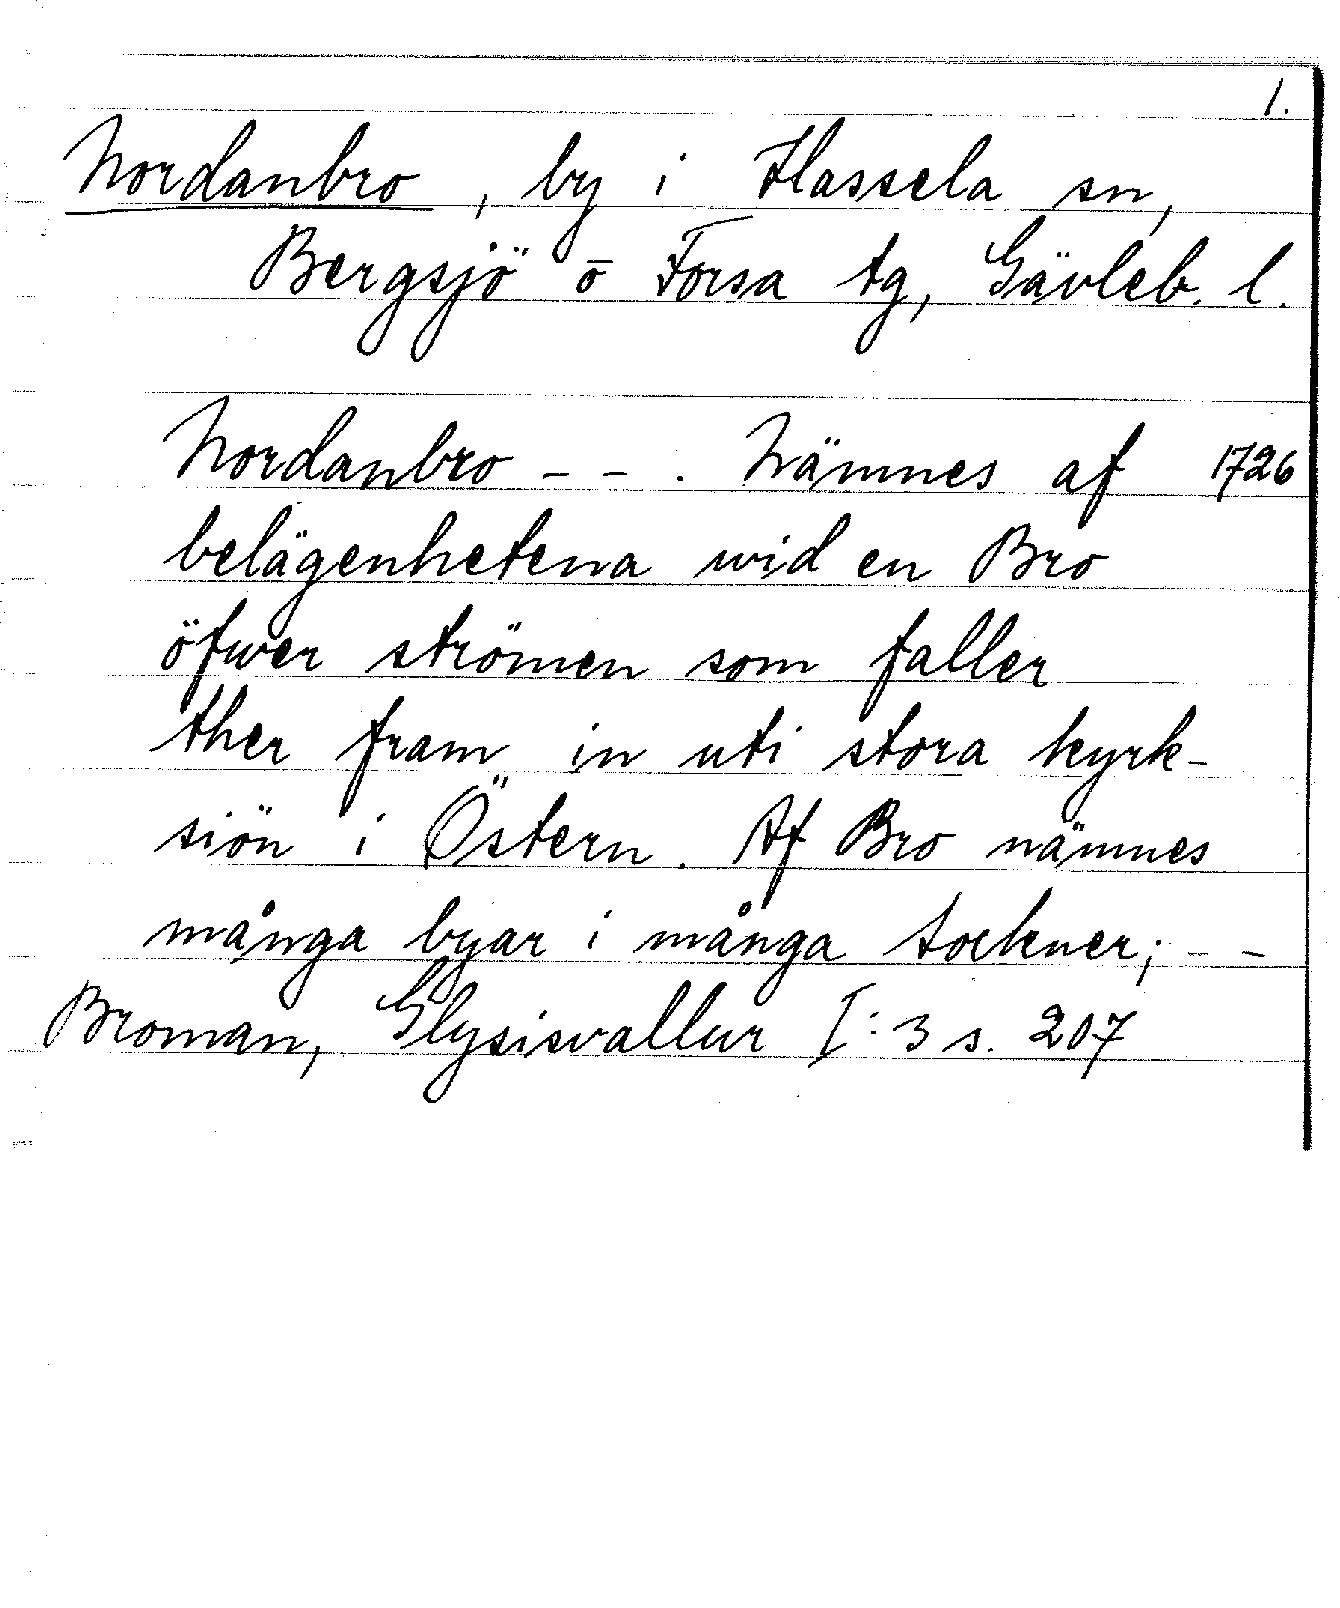 1.
Nordanbro, by i Hassela sn,
Bergsjö o Forsa tg, Gävleb. l.
Nordanbro - - . Nämnes af 1726
belägenhetena wid en Bro
öfwer strömen som faller
ther fram in uti stora kyrk-
siön i Östern. Af Bro nämnes
många byar i många sockner; - -
Broman, Glysisvallur I:3 s. 207